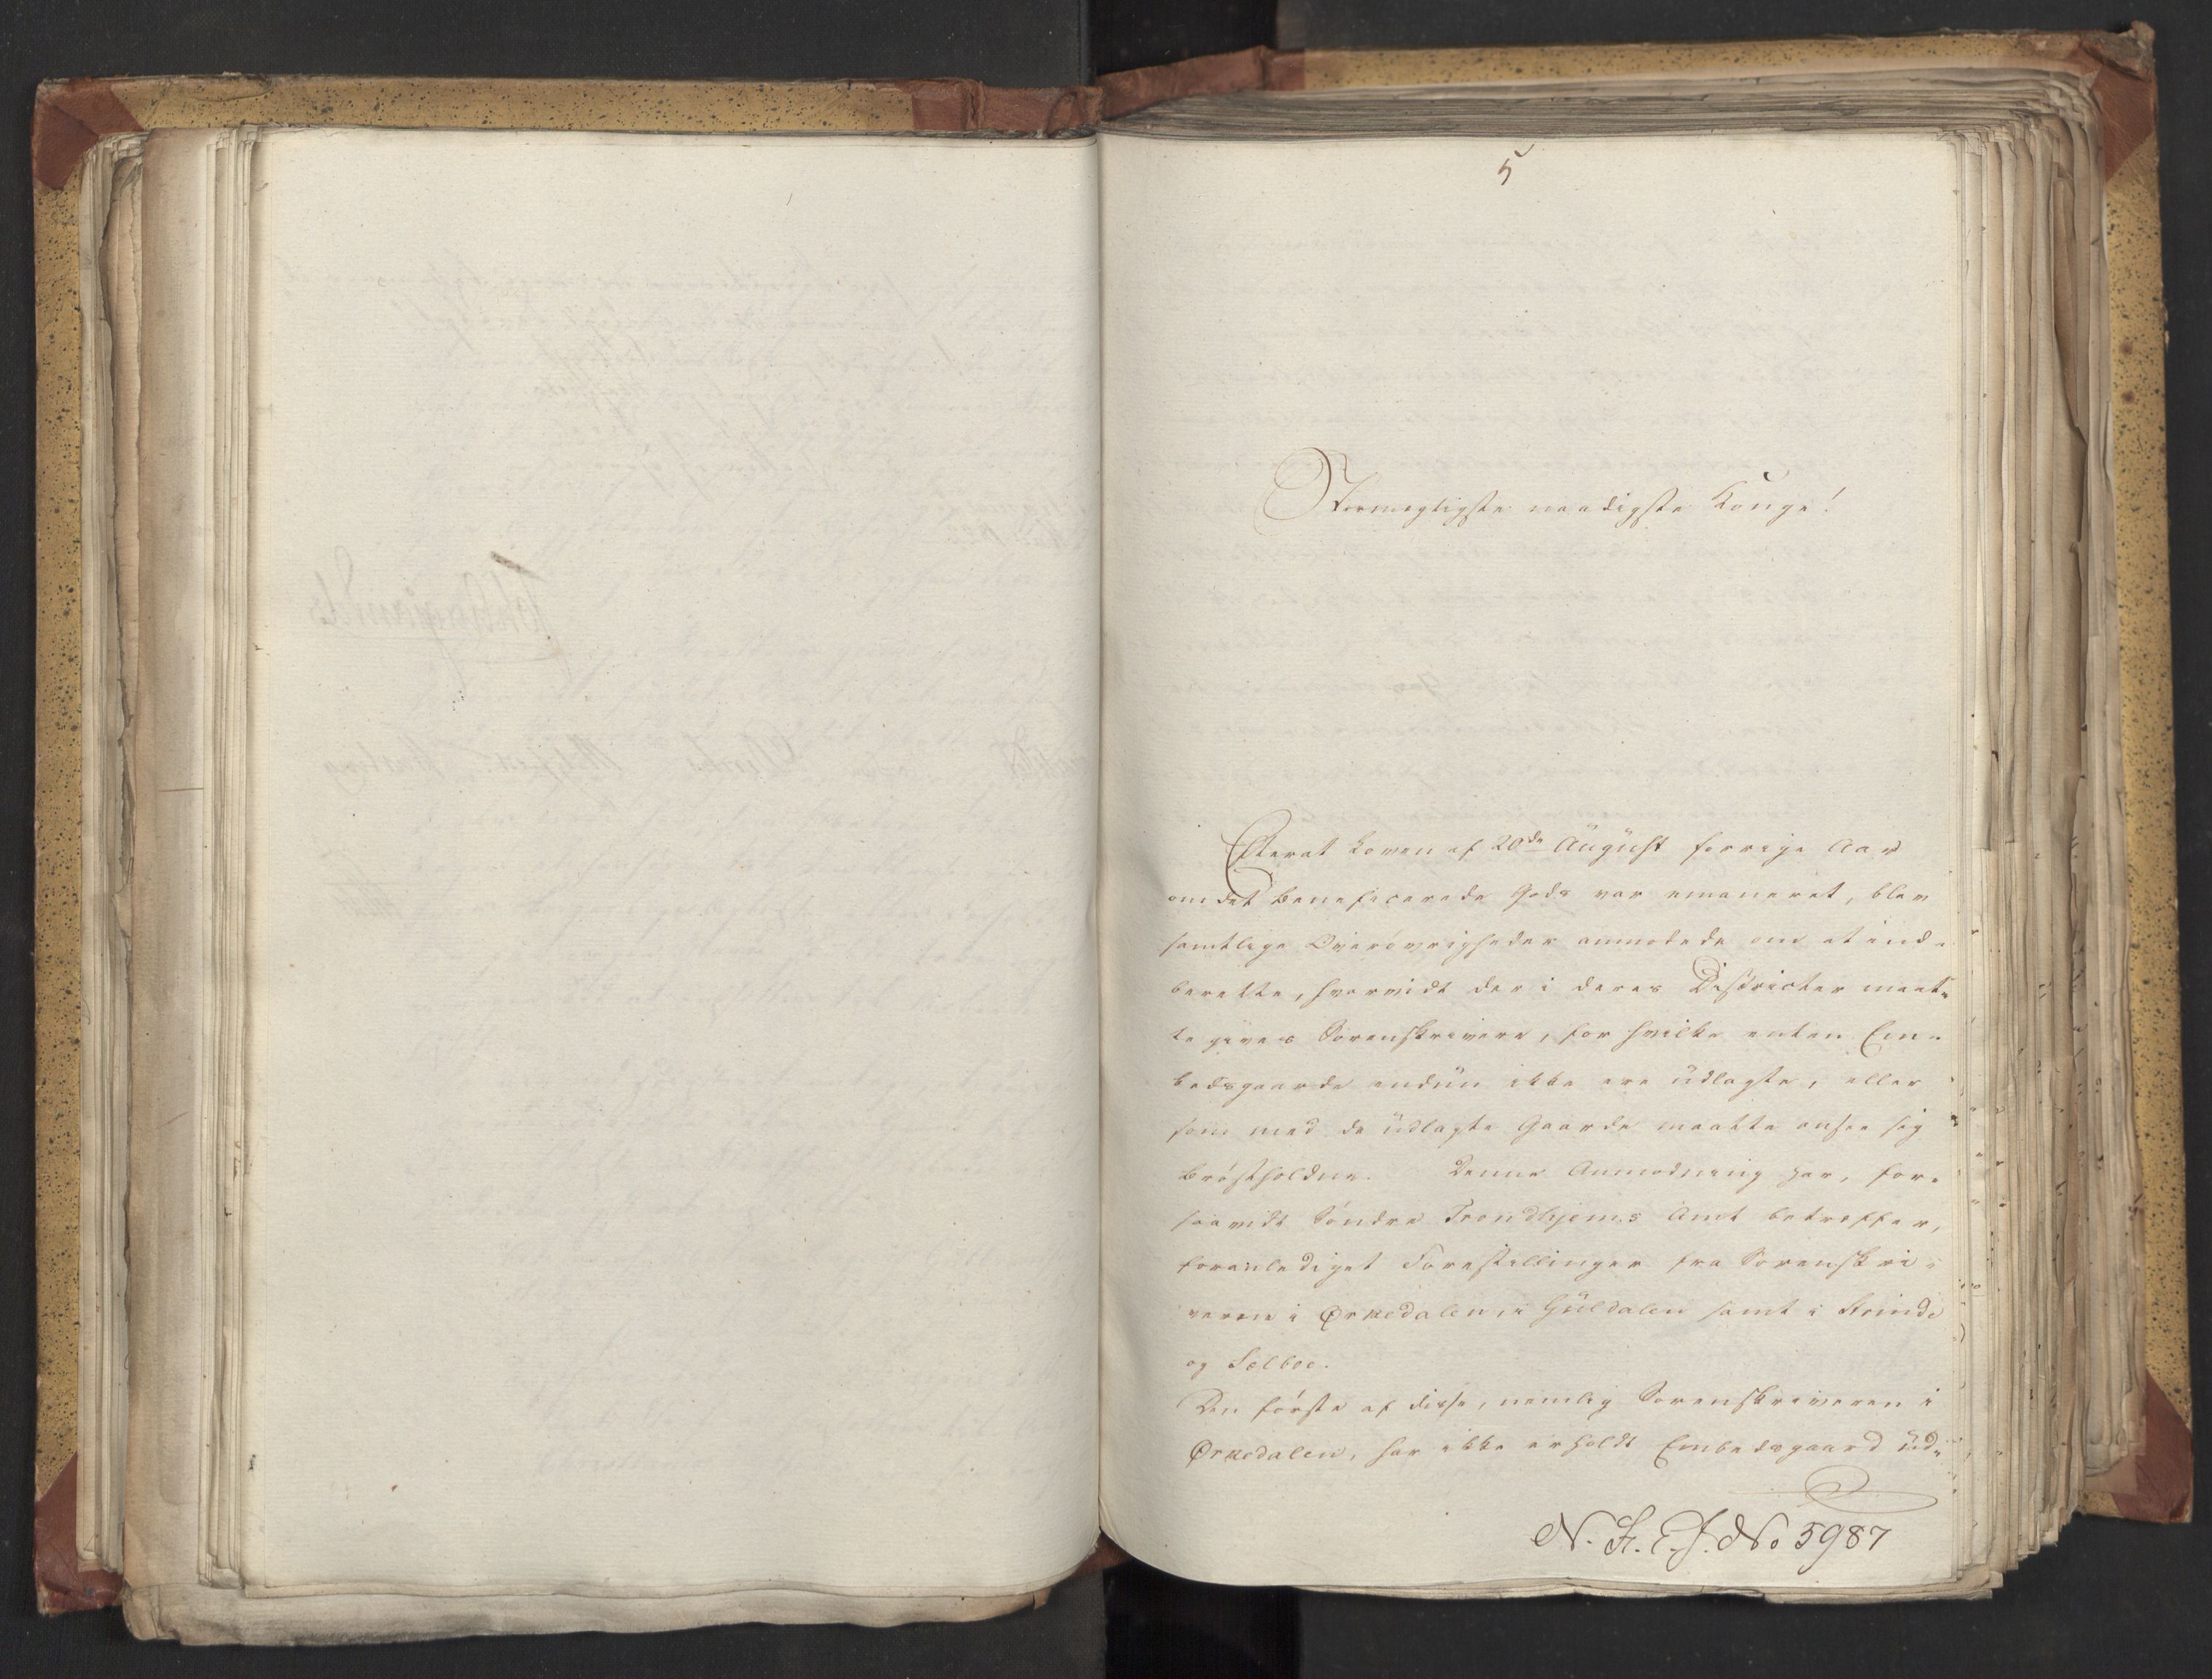 5
Stormægtigste naadigste Konge!
Efterat Loven af 20de August forrige Aar
om det beneficerede Gods var emaneret, blev
samtlige Overøvrigheder anmodede om at ind-
berette, hvorvidt der i deres Districter maat-
te gives Sorenskrivere, for hvilke enten Em-
bedsgaarde endnu ikke ere udlagte, eller
som med de udlagte Gaarde maatte ansee sig
brøstholdne. Denne Anmodning har, for-
saavidt Søndre Trondhjems Amt betreffer,
foranlediget Forestillinger fra Sorenskri-
verne i Ørkedalen, i Guldalen samt i Strinde
og Selboe.
Den første af disse, nemlig Sorenskriveren i
Ørkedalen, har ikke erholdt Embedsgaard ud-
N. R. C. J. No 5987